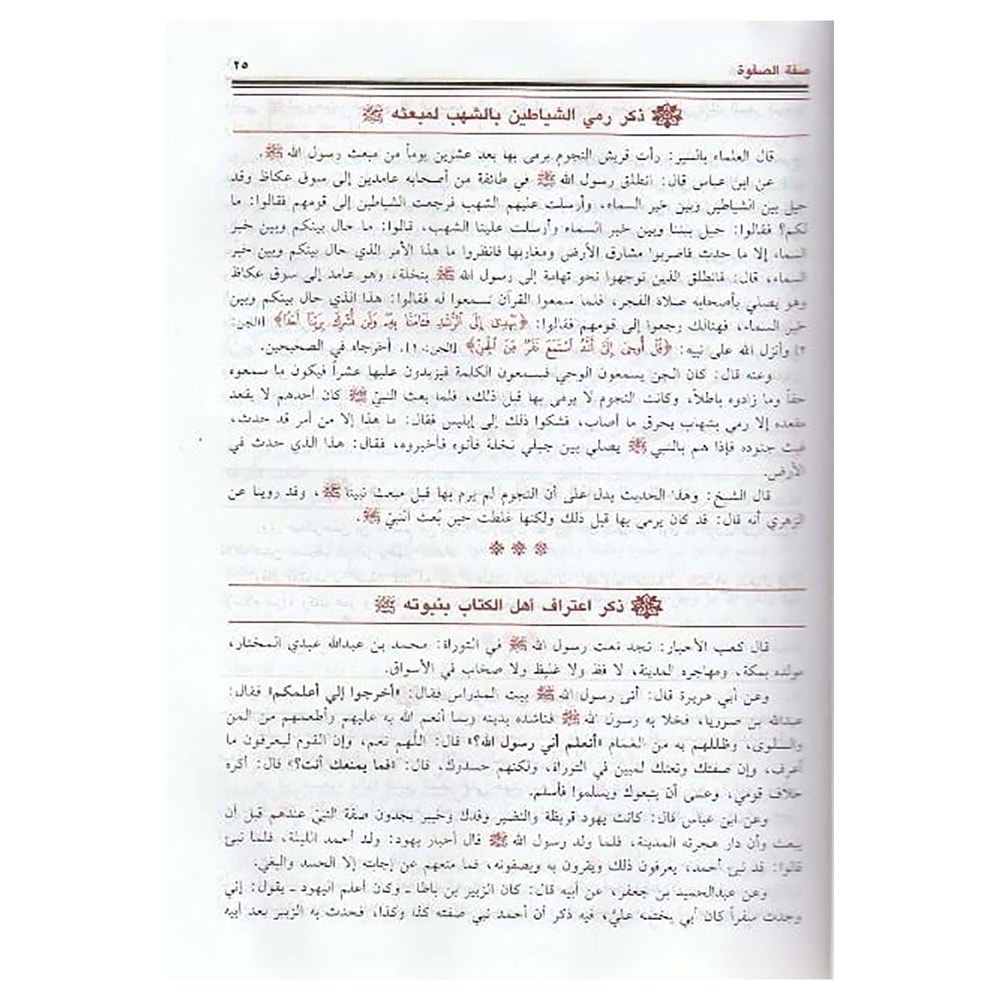 صفة الصفوة
٢٥
ذكر رمي الشياطين بالشهب لمبعثه ﷺ
قال العلماء بالسير: رأت قريش النجوم يرمى بها بعد عشرين يوماً من مبعث رسول الله ﷺ.
عن ابن عباس قال: انطلق رسول الله ﷺ في طائفة من أصحابه عامدين إلى سوق عكاظ وقد
حيل بين الشياطين وبين خبر السماء، وأرسلت عليهم الشهب فرجعت الشياطين إلى قومهم فقالوا: ما
لكم؟ فقالوا: حيل بيننا وبين خبر السماء وأرسلت علينا الشهب، قالوا: ما حال بينكم وبين خبر
السماء إلا ما حدث فاضربوا مشارق الأرض ومغاربها فانظروا ما هذا الأمر الذي حال بينكم وبين خبر
السماء، قال: فانطلق الذين توجهوا نحو تهامة إلى رسول الله ﷺ بنخلة، وهو عامد إلى سوق عكاظ
وهو يصلي بأصحابه صلاة الفجر، فلما سمعوا القرآن تسمعوا له فقالوا: هذا الذي حال بينكم وبين
خبر السماء، فهنالك رجعوا إلى قومهم فقالوا: ﴿يَهْدِى إِلَى الرُّشْدِ فَـَٔامَنَّا بِهِۦ وَلَن نُّشْرِكَ بِرَبِّنَا أَحَدًا﴾ [الجن:
٢] وأنزل الله على نبيه: ﴿قُلْ أُوحِىَ إِلَىَّ أَنَّهُ ٱسْتَمَعَ نَفَرٌ مِّنَ ٱلْجِنِّ﴾ [الجن: ١]. أخرجاه في الصحيحين.
وعنه قال: كان الجن يسمعون الوحي فيسمعون الكلمة فيزيدون عليها عشراً فيكون ما سمعوه
حقاً وما زادوه باطلاً، وكانت النجوم لا يرمى بها قبل ذلك، فلما بعث النبيّ ﷺ كان أحدهم لا يقعد
مقعده إلا رمي بشهاب يحرق ما أصاب، فشكوا ذلك إلى إبليس فقال: ما هذا إلا من أمر قد حدث،
فبث جنوده فإذا هم بالنبي ﷺ يصلي بين جبلي نخلة فأتوه فأخبروه، فقال: هذا الذي حدث في
الأرض.
قال الشيخ: وهذا الحديث يدل على أن النجوم لم يرم بها قبل مبعث نبينا ﷺ، وقد روينا عن
الزهري أنه قال: قد كان يرمى بها قبل ذلك ولكنها غلظت حين بُعث النبيّ ﷺ.
* * *
ذكر اعتراف أهل الكتاب بنبوته ﷺ
قال كعب الأحبار: نجد نعت رسول الله ﷺ في التوراة: محمد بن عبدالله عبدي المختار،
مولده بمكة، ومهاجره المدينة، لا فظ ولا غليظ ولا صخاب في الأسواق.
وعن أبي هريرة قال: أتى رسول الله ﷺ بيت المدراس فقال: «أخرجوا إلي أعلمكم» فقال:
عبدالله بن صوريا، فخلا به رسول الله ﷺ فناشده بدينه وبما أنعم الله به عليهم وأطعمهم من المن
والسلوى، وظللهم به من الغمام «أتعلم أني رسول الله؟» قال: اللّهم نعم، وإن القوم ليعرفون ما
أعرف، وإن صفتك ونعتك لمبين في التوراة، ولكنهم حسدوك، قال: «فما يمنعك أنت؟» قال: أكره
خلاف قومي، وعسى أن يتبعوك ويسلموا فأسلم.
وعن ابن عباس قال: كانت يهود قريظة والنضير وفدك وخيبر يجدون صفة النبيّ عندهم قبل أن
يبعث وأن دار هجرته المدينة، فلما ولد رسول الله ﷺ قال أحبار يهود: ولد أحمد الليلة، فلما نبئ
قالوا: قد نبئ أحمد، يعرفون ذلك ويقرون به ويصفونه، فما منعهم عن إجابته إلا الحسد والبغي.
وعن عبدالحميد بن جعفر، عن أبيه قال: كان الزبير بن باطا ـ وكان أعلم اليهود ـ يقول: إني
وجدت سفراً كان أبي يختمه عليّ، فيه ذكر أن أحمد نبي صفته كذا وكذا، فحدث به الزبير بعد أبيه